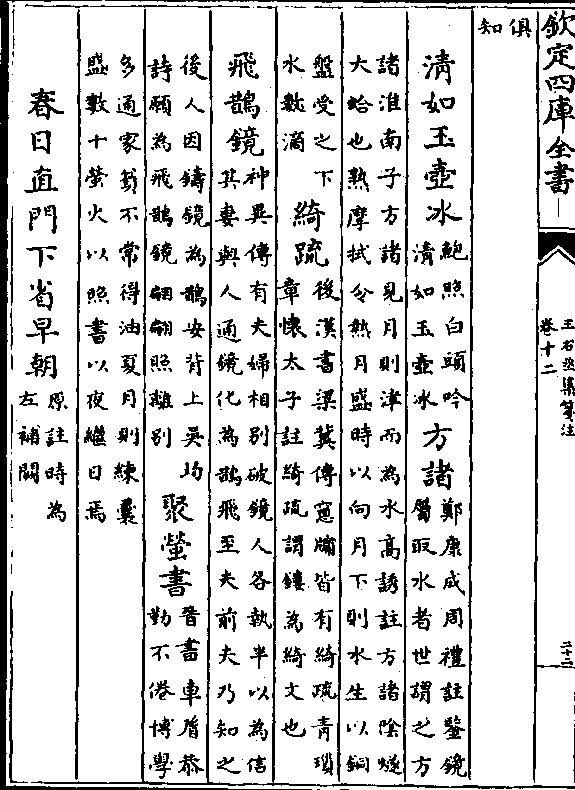 欽定四庫全書
王右丞集箋注
卷十二
二十二
俱
知
清如玉壺冰
鮑照白頭吟
清如玉壺冰
方諸
鄭康成周禮註鑒鏡
屬取水者世謂之方
諸淮南子方諸見月則津而為水高誘註方諸陰燧
大蛤也熟摩拭令熱月盛時以向月下則水生以銅
盤受之下
水數滴
綺疏
後漢書梁冀傳窓牖皆有綺疏青瑣
章懷太子註綺疏謂鏤為綺文也
飛鵲鏡
神異傳有夫婦相別破鏡人各執半以為信
其妻與人通鏡化為鵲飛至夫前夫乃知之
後人因鑄鏡為鵲安背上吳均
詩願為飛鵲鏡翩翩照離別
聚螢書
晉書車胤恭
勤不倦博學
多通家貧不常得油夏月則練囊
盛數十螢火以照書以夜繼日焉
春日直門下省早朝
原註時為
左補闕